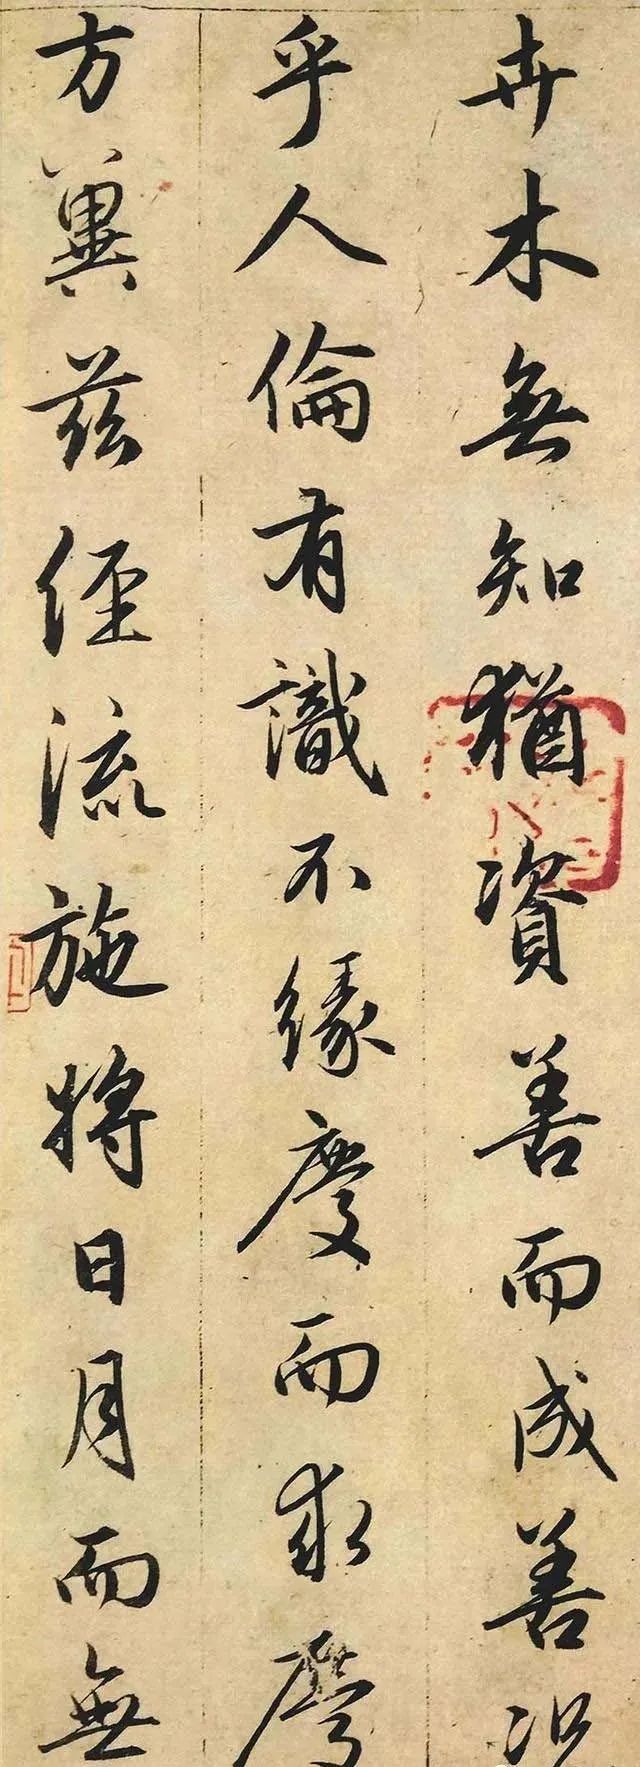 卉木無知猶資善而成善况
乎人倫有識不緣慶而求慶
方冀茲經流施將日月而無